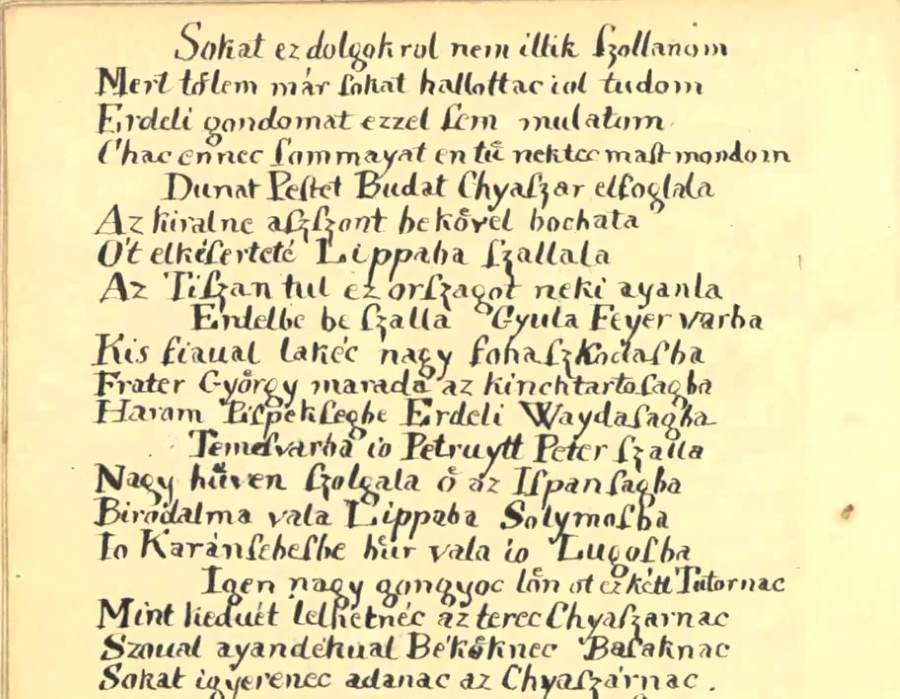 Sokat ez dolgokrol nem illik ſzollanom
Mert tőlem már ſokat hallottac iol tudom
Erdeli gondomat ezzel ſem mulatom
Chac ennec ſommayat en tuͤ nektec maſt mondom
Dunat Peſtet Budat Chyaſzar elfoglala
Az kiralne aſzſzont be koͤvel bochata
Ot elkéſerteté Lippaba ſzallala
Az Tiſzan tul ez orſzagot neki ayanla
Erdelbe be ſzalla Gyula Feyer varba
Kis fiaual lakéc nagy fohaſzkodaſba
Frater Gyoͤrgy marada az kinchtartoſagba
Harom Piſpekſegbe Erdeli Waydaſagba
Temeſvarba io Petruytt Peter ſzalla
Nagy huͤven ſzolgala oͤ az Iſpanſagba
Birodalma vala Lippaba Solymoſba
Io Karánſebeſbe huͤr vala io Lugoſba
Igen nagy gongyoc loͤn ot ez kétt Tutornac
Mint keduét lelhetnéc az terec Chyaſzarnac
Szoual ayandékual Békoͤknec Baſaknac
Sokat igyerenec adanac az Chyaſzárnac.